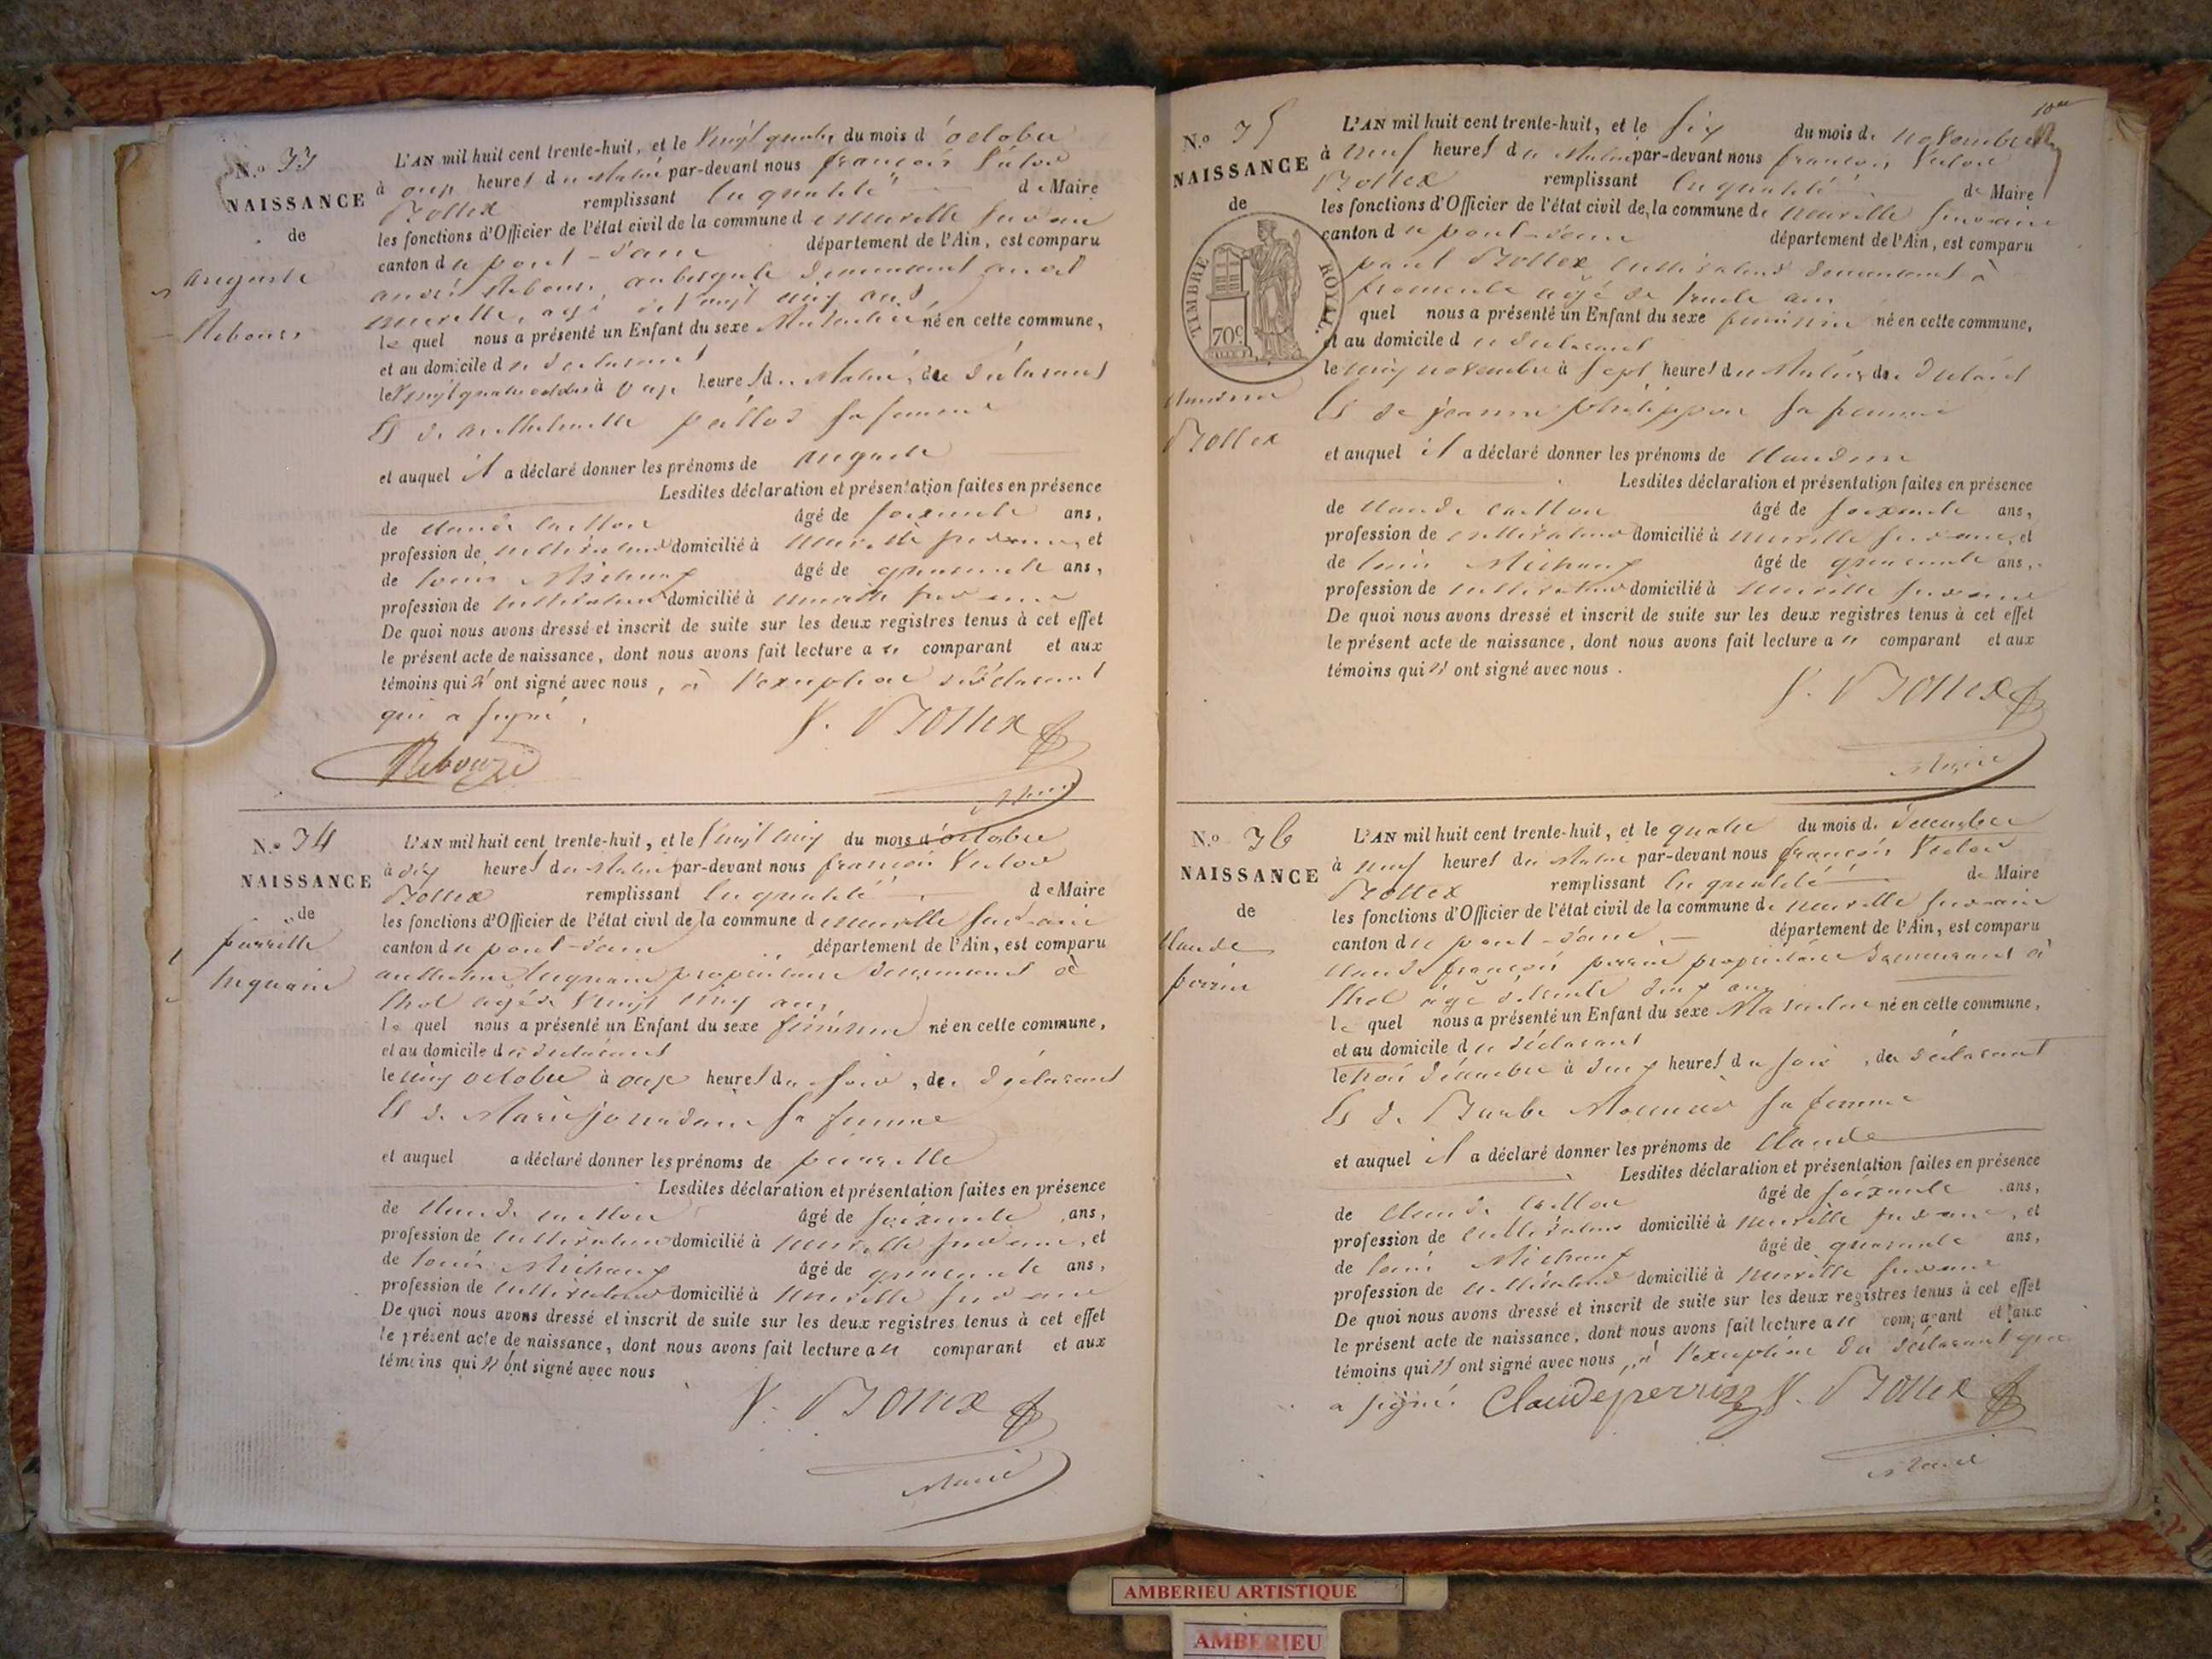 N.º 33
NAISSANCE
de
auguste
Rebours
L'AN mil huit cent trente-huit, et le Vingt quatre du mois d'octobre
à onze heures du Matin par-devant nous françois Victor
Bollex remplissant en qualité de Maire
les fonctions d'Officier de l'état civil de la commune de neuville sur ain
canton de pont-d'ain département de l'Ain, est comparu
aubergiste demeurant au dit
neuville, agé de Vingt cinq ans
lequel nous a présenté un Enfant du sexe Masculin né en cette commune,
et au domicile du declarant
le Vingt quatre octobre à onze heures du Matin, de declarant
Et de sa femme
et auquel il a déclaré donner les prénoms de auguste
Lesdites déclaration et présentation faites en présence
de claude caillon âgé de soixante ans,
profession de cultivateur domicilié à neuville sur ain, et
de louis Michaux âgé de quarante ans,
profession de cultivateur domicilié à neuville sur ain
De quoi nous avons dressé et inscrit de suite sur les deux registres tenus à cet effet
le présent acte de naissance, dont nous avons fait lecture au comparant et aux
témoins qui n'ont signé avec nous, à l'exception du déclarant
qui a signé.
V. Bollex
Maire
N.º 34
NAISSANCE
de
pierrette
L'AN mil huit cent trente-huit, et le Vingt cinq du mois d'octobre
à dix heures du Matin par-devant nous françois Victor
Bollex remplissant en qualité de Maire
les fonctions d'Officier de l'état civil de la commune de neuville sur ain
canton de pont-d'ain département de l'Ain, est comparu
anthelme propriétaire demeurant à
thol agé de Vingt cinq ans
lequel nous a présenté un Enfant du sexe féminin né en cette commune,
et au domicile du declarant
le cinq octobre à onze heures du soir, de déclarant
Et de Marie jourdain sa femme
et auquel a déclaré donner les prénoms de pierrette
Lesdites déclaration et présentation faites en présence
de claude caillon âgé de soixante ans,
profession de cultivateur domicilié à neuville sur ain, et
de louis Michaux âgé de quarante ans,
profession de cultivateur domicilié à neuville sur ain
De quoi nous avons dressé et inscrit de suite sur les deux registres tenus à cet effet
le présent acte de naissance, dont nous avons fait lecture au comparant et aux
témoins qui n'ont signé avec nous
V. Bollex
Maire
N.º 35
NAISSANCE
de
TIMBRE ROYAL.
70c
claudine
Bollex
L'AN mil huit cent trente-huit, et le six du mois de novembre
à neuf heures du Matin par-devant nous françois Victor
Bollex remplissant en qualité de Maire
les fonctions d'Officier de l'état civil de la commune de neuville sur ain
canton de pont-d'ain département de l'Ain, est comparu
Bollex cultivateur demeurant à
fromente agé de trente ans
quel nous a présenté un Enfant du sexe féminin né en cette commune,
et au domicile du declarant
le cinq novembre à sept heures du Matin, de declarant
Et de jeanne philippon sa femme
et auquel il a déclaré donner les prénoms de claudine
Lesdites déclaration et présentation faites en présence
de claude caillon âgé de soixante ans,
profession de cultivateur domicilié à neuville sur ain, et
de louis Michaux âgé de quarante ans,
profession de cultivateur domicilié à neuville sur ain
De quoi nous avons dressé et inscrit de suite sur les deux registres tenus à cet effet
le présent acte de naissance, dont nous avons fait lecture au comparant et aux
témoins qui n'ont signé avec nous.
V. Bollex
Maire
N.º 36
NAISSANCE
de
claude
perrin
L'AN mil huit cent trente-huit, et le quatre du mois de décembre
à neuf heures du Matin par-devant nous françois Victor
Bollex remplissant en qualité de Maire
les fonctions d'Officier de l'état civil de la commune de neuville sur ain
canton de pont-d'ain département de l'Ain, est comparu
claude françois perrin propriétaire demeurant à
thol âgé de trente deux ans
lequel nous a présenté un Enfant du sexe Masculin né en cette commune,
et au domicile du déclarant
le trois décembre à deux heures du soir, de déclarant
Et de sa femme
et auquel il a déclaré donner les prénoms de claude
Lesdites déclaration et présentation faites en présence
de claude caillon âgé de soixante ans,
profession de cultivateur domicilié à neuville sur ain, et
de louis Michaux âgé de quarante ans,
profession de cultivateur domicilié à neuville sur ain
De quoi nous avons dressé et inscrit de suite sur les deux registres tenus à cet effet
le présent acte de naissance, dont nous avons fait lecture au comparant et aux
témoins qui n'ont signé avec nous, à l'exception du déclarant qui
a signé. Claude perrin V. Bollex
Maire
AMBERIEU ARTISTIQUE
AMBERIEU